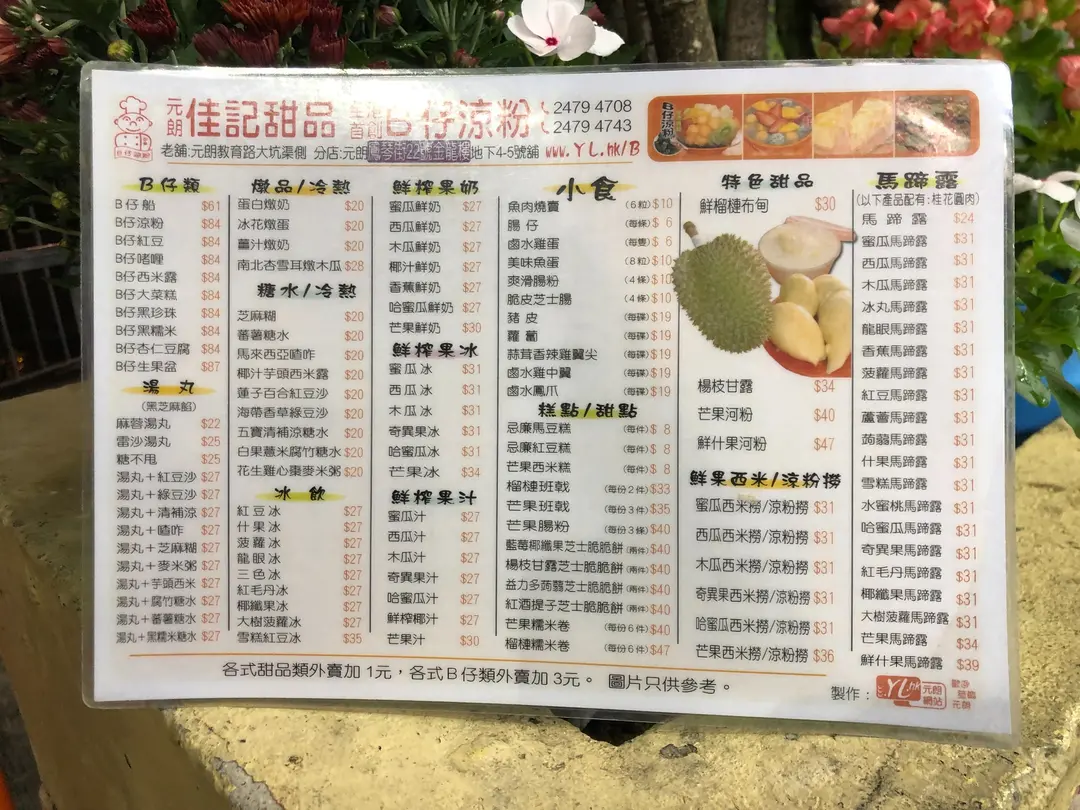 元朗 佳記甜品 全港首創 B仔涼粉 2479 4708
2479 4743
老舖:元朗教育路大坑渠側 分店:元朗鷹琴街22號金龍樓地下4-5號舖 www.YL.hk/B
B仔涼粉
佳記甜品
B仔類
B仔船 $61
B仔涼粉 $84
B仔紅豆 $84
B仔啫喱 $84
B仔西米露 $84
B仔大菜糕 $84
B仔黑珍珠 $84
B仔黑糯米 $84
B仔杏仁豆腐 $84
B仔生果盆 $87
湯丸
(黑芝麻餡)
麻蓉湯丸 $22
雷沙湯丸 $25
糖不甩 $25
湯丸+紅豆沙 $27
湯丸+綠豆沙 $27
湯丸+清補涼 $27
湯丸+喳咋 $27
湯丸+芝麻糊 $27
湯丸+麥米粥 $27
湯丸+芋頭西米 $27
湯丸+腐竹糖水 $27
湯丸+蕃薯糖水 $27
湯丸+黑糯米糖水 $27
燉品/冷熱
蛋白燉奶 $20
冰花燉蛋 $20
薑汁燉奶 $20
南北杏雪耳燉木瓜 $28
糖水/冷熱
芝麻糊 $20
蕃薯糖水 $20
馬來西亞喳咋 $20
椰汁芋頭西米露 $20
蓮子百合紅豆沙 $20
海帶香草綠豆沙 $20
五寶清補涼糖水 $20
白果薏米腐竹糖水 $20
花生雞心棗麥米粥 $20
冰飲
紅豆冰 $27
什果冰 $27
菠蘿冰 $27
龍眼冰 $27
三色冰 $27
紅毛丹冰 $27
椰纖果冰 $27
大樹菠蘿冰 $27
雪糕紅豆冰 $35
鮮榨果奶
蜜瓜鮮奶 $27
西瓜鮮奶 $27
木瓜鮮奶 $27
椰汁鮮奶 $27
香蕉鮮奶 $27
哈蜜瓜鮮奶 $27
芒果鮮奶 $30
鮮榨果冰
蜜瓜冰 $31
西瓜冰 $31
木瓜冰 $31
奇異果冰 $31
哈蜜瓜冰 $31
芒果冰 $34
鮮榨果汁
蜜瓜汁 $27
西瓜汁 $27
木瓜汁 $27
奇異果汁 $27
哈蜜瓜汁 $27
鮮榨椰汁 $27
芒果汁 $30
小食
魚肉燒賣 (6粒) $10
腸仔 (每條) $ 6
鹵水雞蛋 (每隻) $ 6
美味魚蛋 (8粒) $10
爽滑腸粉 (4條) $10
脆皮芝士腸 (4條) $10
豬皮 (每碟) $19
蘿蔔 (每碟) $19
蒜茸香辣雞翼尖 (每碟) $19
鹵水雞中翼 (每碟) $19
鹵水鳳爪 (每碟) $19
糕點/甜點
忌廉馬豆糕 (每件) $ 8
忌廉紅豆糕 (每件) $ 8
芒果西米糕 (每件) $ 8
榴槤班戟 (每份2件) $33
芒果班戟 (每份3件) $35
芒果腸粉 (每份3條) $40
藍莓椰纖果芝士脆脆餅 (兩件) $40
楊枝甘露芝士脆脆餅 (兩件) $40
益力多蒟蒻芝士脆脆餅 (兩件) $40
紅酒提子芝士脆脆餅 (兩件) $40
芒果糯米卷 (每份6件) $40
榴槤糯米卷 (每份6件) $47
特色甜品
鮮榴槤布甸 $30
楊枝甘露 $34
芒果河粉 $40
鮮什果河粉 $47
鮮果西米/涼粉撈
蜜瓜西米撈/涼粉撈 $31
西瓜西米撈/涼粉撈 $31
木瓜西米撈/涼粉撈 $31
奇異果西米撈/涼粉撈 $31
哈蜜瓜西米撈/涼粉撈 $31
芒果西米撈/涼粉撈 $36
馬蹄露
(以下產品配有:桂花圓肉)
馬蹄露 $24
蜜瓜馬蹄露 $31
西瓜馬蹄露 $31
木瓜馬蹄露 $31
冰丸馬蹄露 $31
龍眼馬蹄露 $31
香蕉馬蹄露 $31
菠蘿馬蹄露 $31
紅豆馬蹄露 $31
蘆薈馬蹄露 $31
蒟蒻馬蹄露 $31
什果馬蹄露 $31
雪糕馬蹄露 $31
水蜜桃馬蹄露 $31
哈蜜瓜馬蹄露 $31
奇異果馬蹄露 $31
紅毛丹馬蹄露 $31
椰纖果馬蹄露 $31
大樹菠蘿馬蹄露 $31
芒果馬蹄露 $34
鮮什果馬蹄露 $39
各式甜品類外賣加 1元,各式B仔類外賣加 3元。 圖片只供參考。
製作: YL.hk 元朗網站 歡迎蒞臨元朗